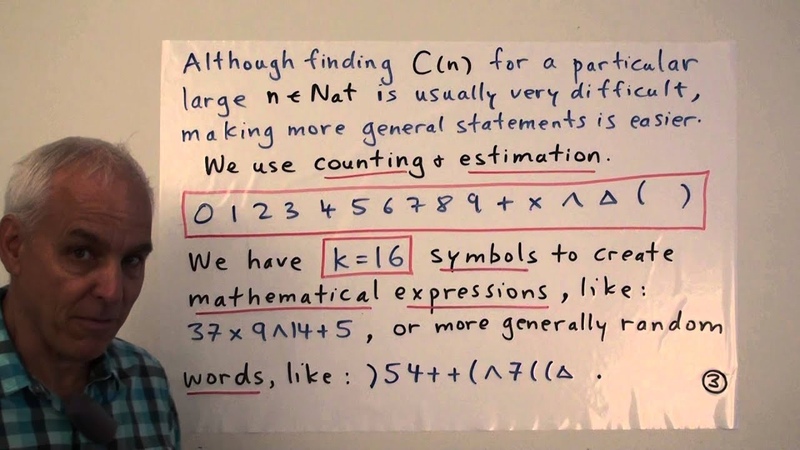 Although finding C(n) for a particular
large n ∈ Nat is usually very difficult,
making more general statements is easier.
We use counting & estimation.
0 1 2 3 4 5 6 7 8 9 + × ∧ △ ( )
We have k=16 symbols to create
mathematical expressions, like:
37 × 9 ∧ 14 + 5 , or more generally random
words, like: ) 5 4 + + ( ∧ 7 ( ( △ .
③